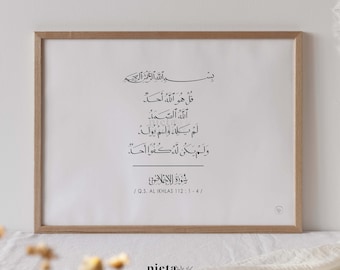 بِسْمِ اللَّهِ الرَّحْمَنِ الرَّحِيمِ
قُلْ هُوَ اللَّهُ أَحَدٌ
اللَّهُ الصَّمَدُ
لَمْ يَلِدْ وَلَمْ يُولَدْ
وَلَمْ يَكُنْ لَهُ كُفُوًا أَحَدٌ
سُورَةُ الإِخْلَاصِ
( Q.S. AL IKHLAS 112 : 1 - 4 )